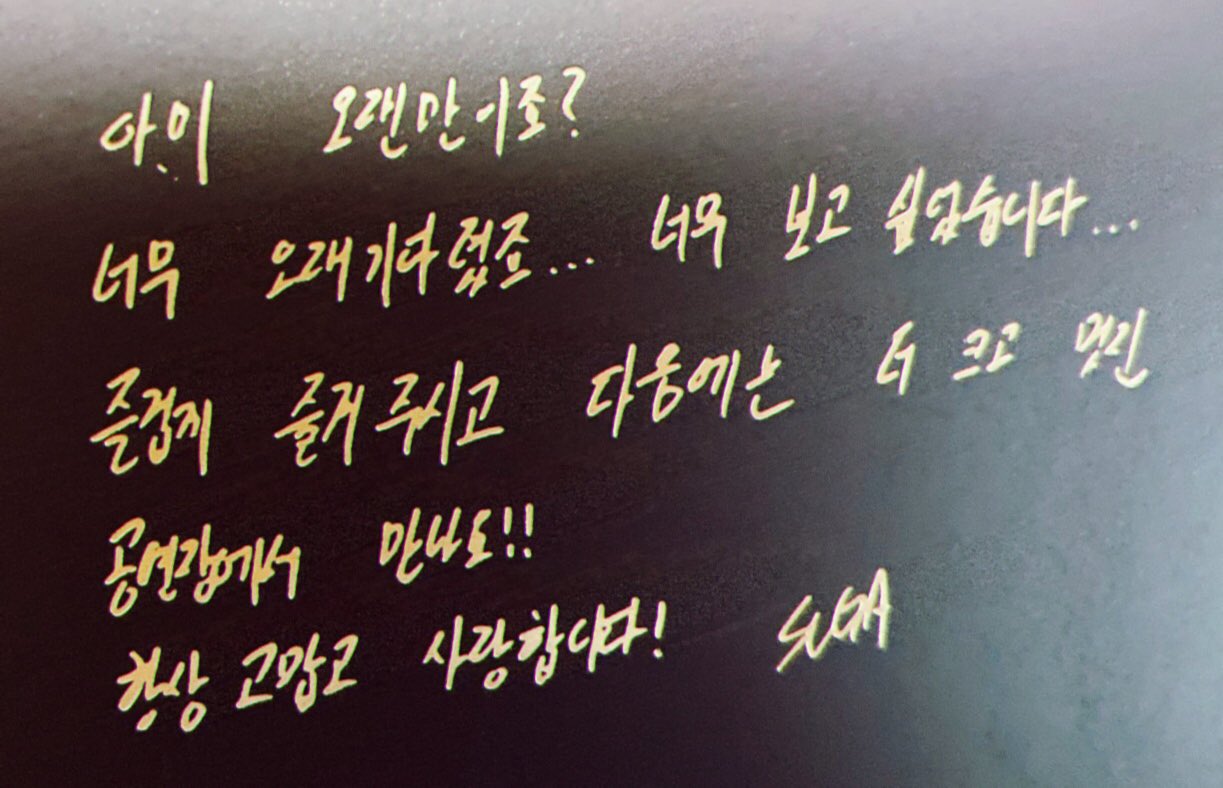 아미 오랜만이죠?
너무 오래 기다렸죠... 너무 보고 싶었습니다...
즐겁게 즐겨주시고 다음에는 더 크고 멋진
공연장에서 만나요!!
항상 고맙고 사랑합니다! SUGA